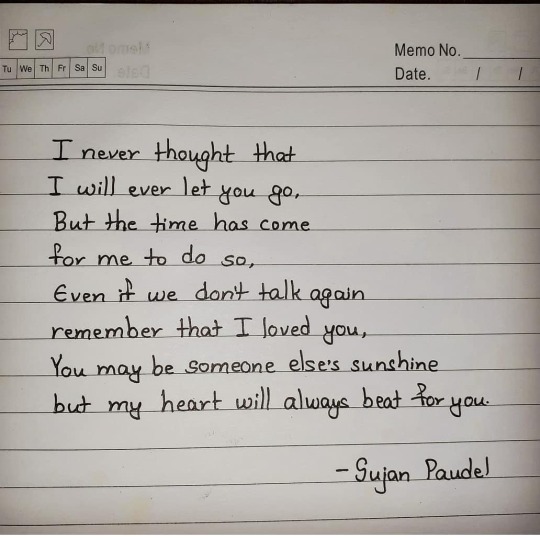 Tu We Th Fr Sa Su
Memo No.
Date. / /
I never thought that
I will ever let you go,
But the time has come
for me to do so,
Even if we don't talk again
remember that I loved you,
You may be someone else's sunshine
but my heart will always beat for you.
- Sujan Paudel